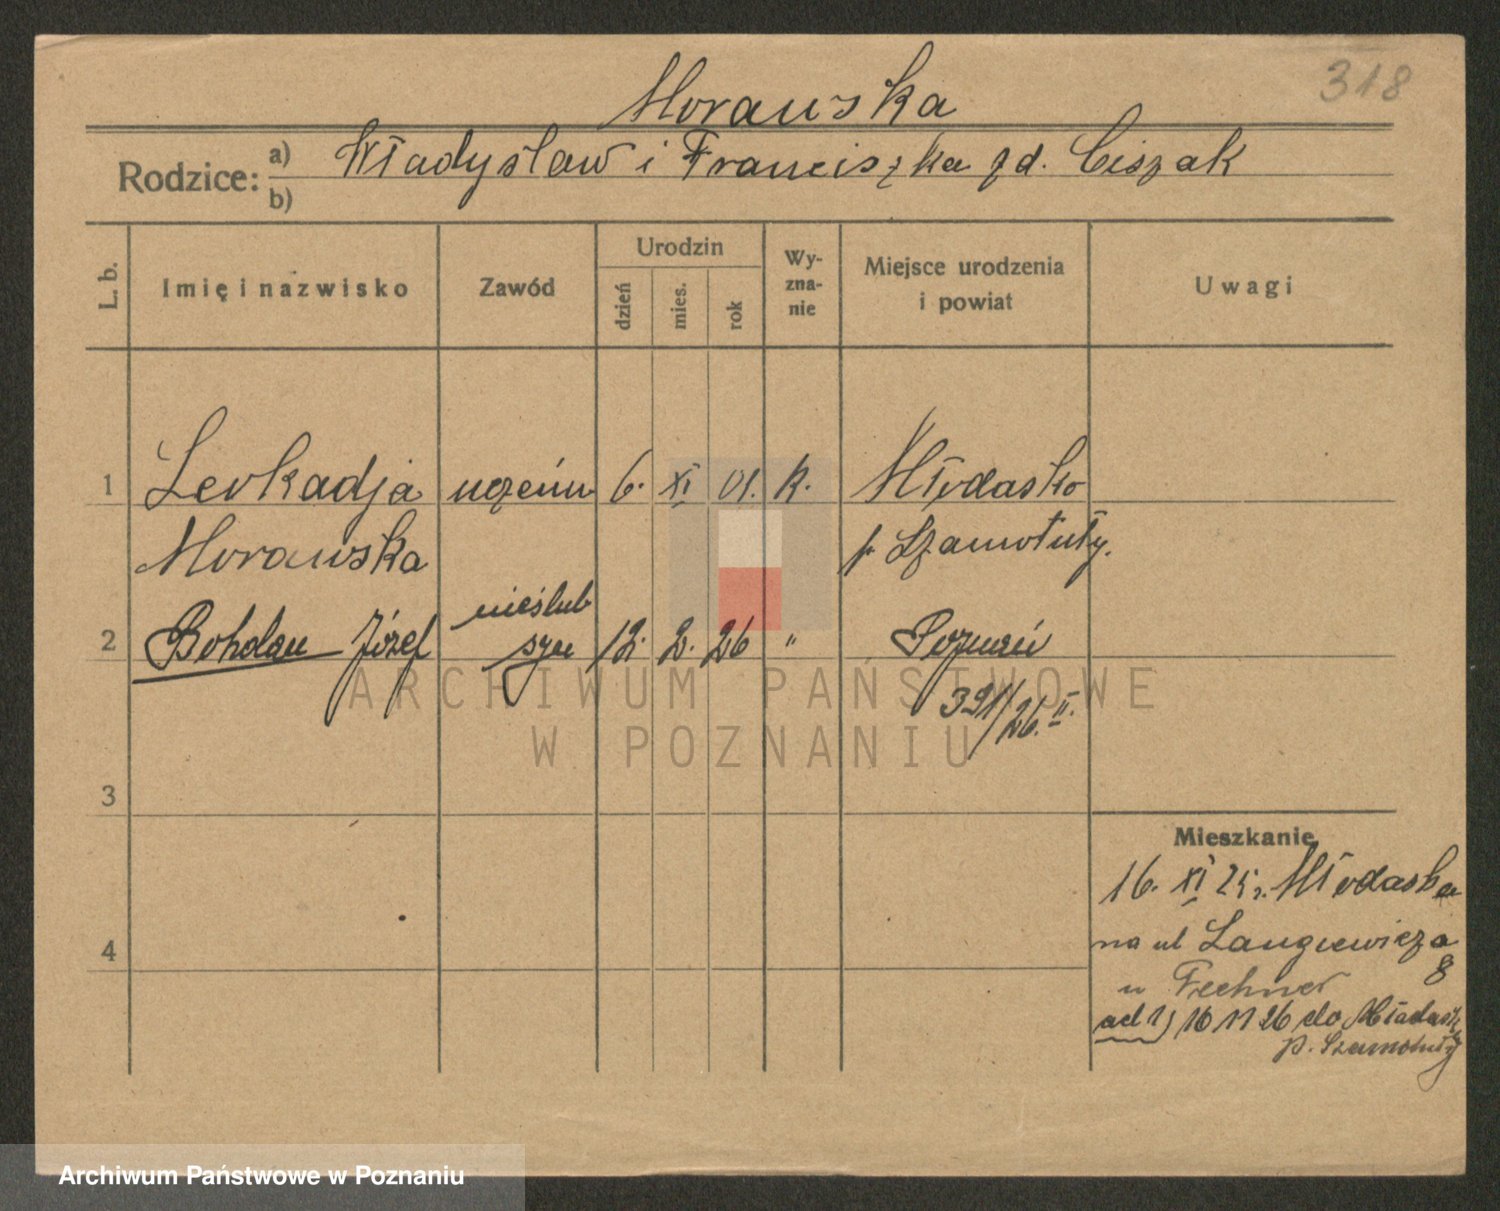 318
Morawska
Rodzice: a) Władysław i Franciszka zd. Ciszak
b)
L. b.
Imię i nazwisko
Zawód
Urodzin
dzień
mies.
rok
Wy-
zna-
nie
Miejsce urodzenia
i powiat
Uwagi
1 Leokadja uczenn 6. XI 01. k. Młodasko
Morawska p. Szamotuły.
nieślub
2 Bohdan Józef syn 12. 2. 26 " Poznań
391/26. II.
3
4
Mieszkanie
16. XI 25 r. Młodaska
na ul Langiewicza
8
u Fechner
ad 1) 16 11 26 do Młodask
p. Szamotuły
ARCHIWUM PAŃSTWOWE
W POZNANIU
Archiwum Państwowe w Poznaniu